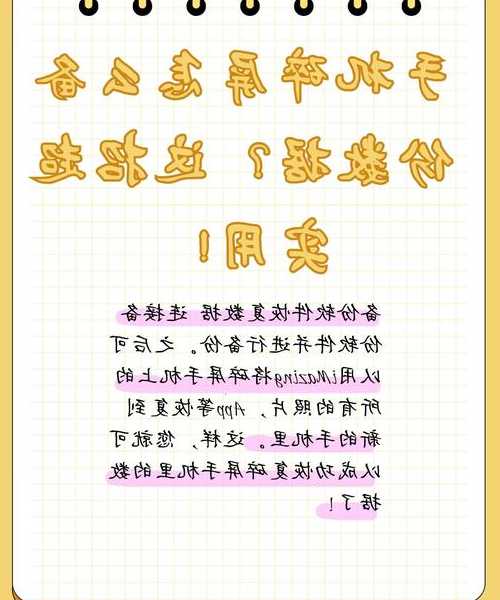 手机碎屏怎么备
份数据？这招超
实用！
备份软件恢复数据 连接备
份软件并进行备份。之后可
以用iMazing将碎屏手机上的
所有的照片，App等恢复到
新的手机里。这样，您就可
以成功恢复碎屏手机里的数
据了！